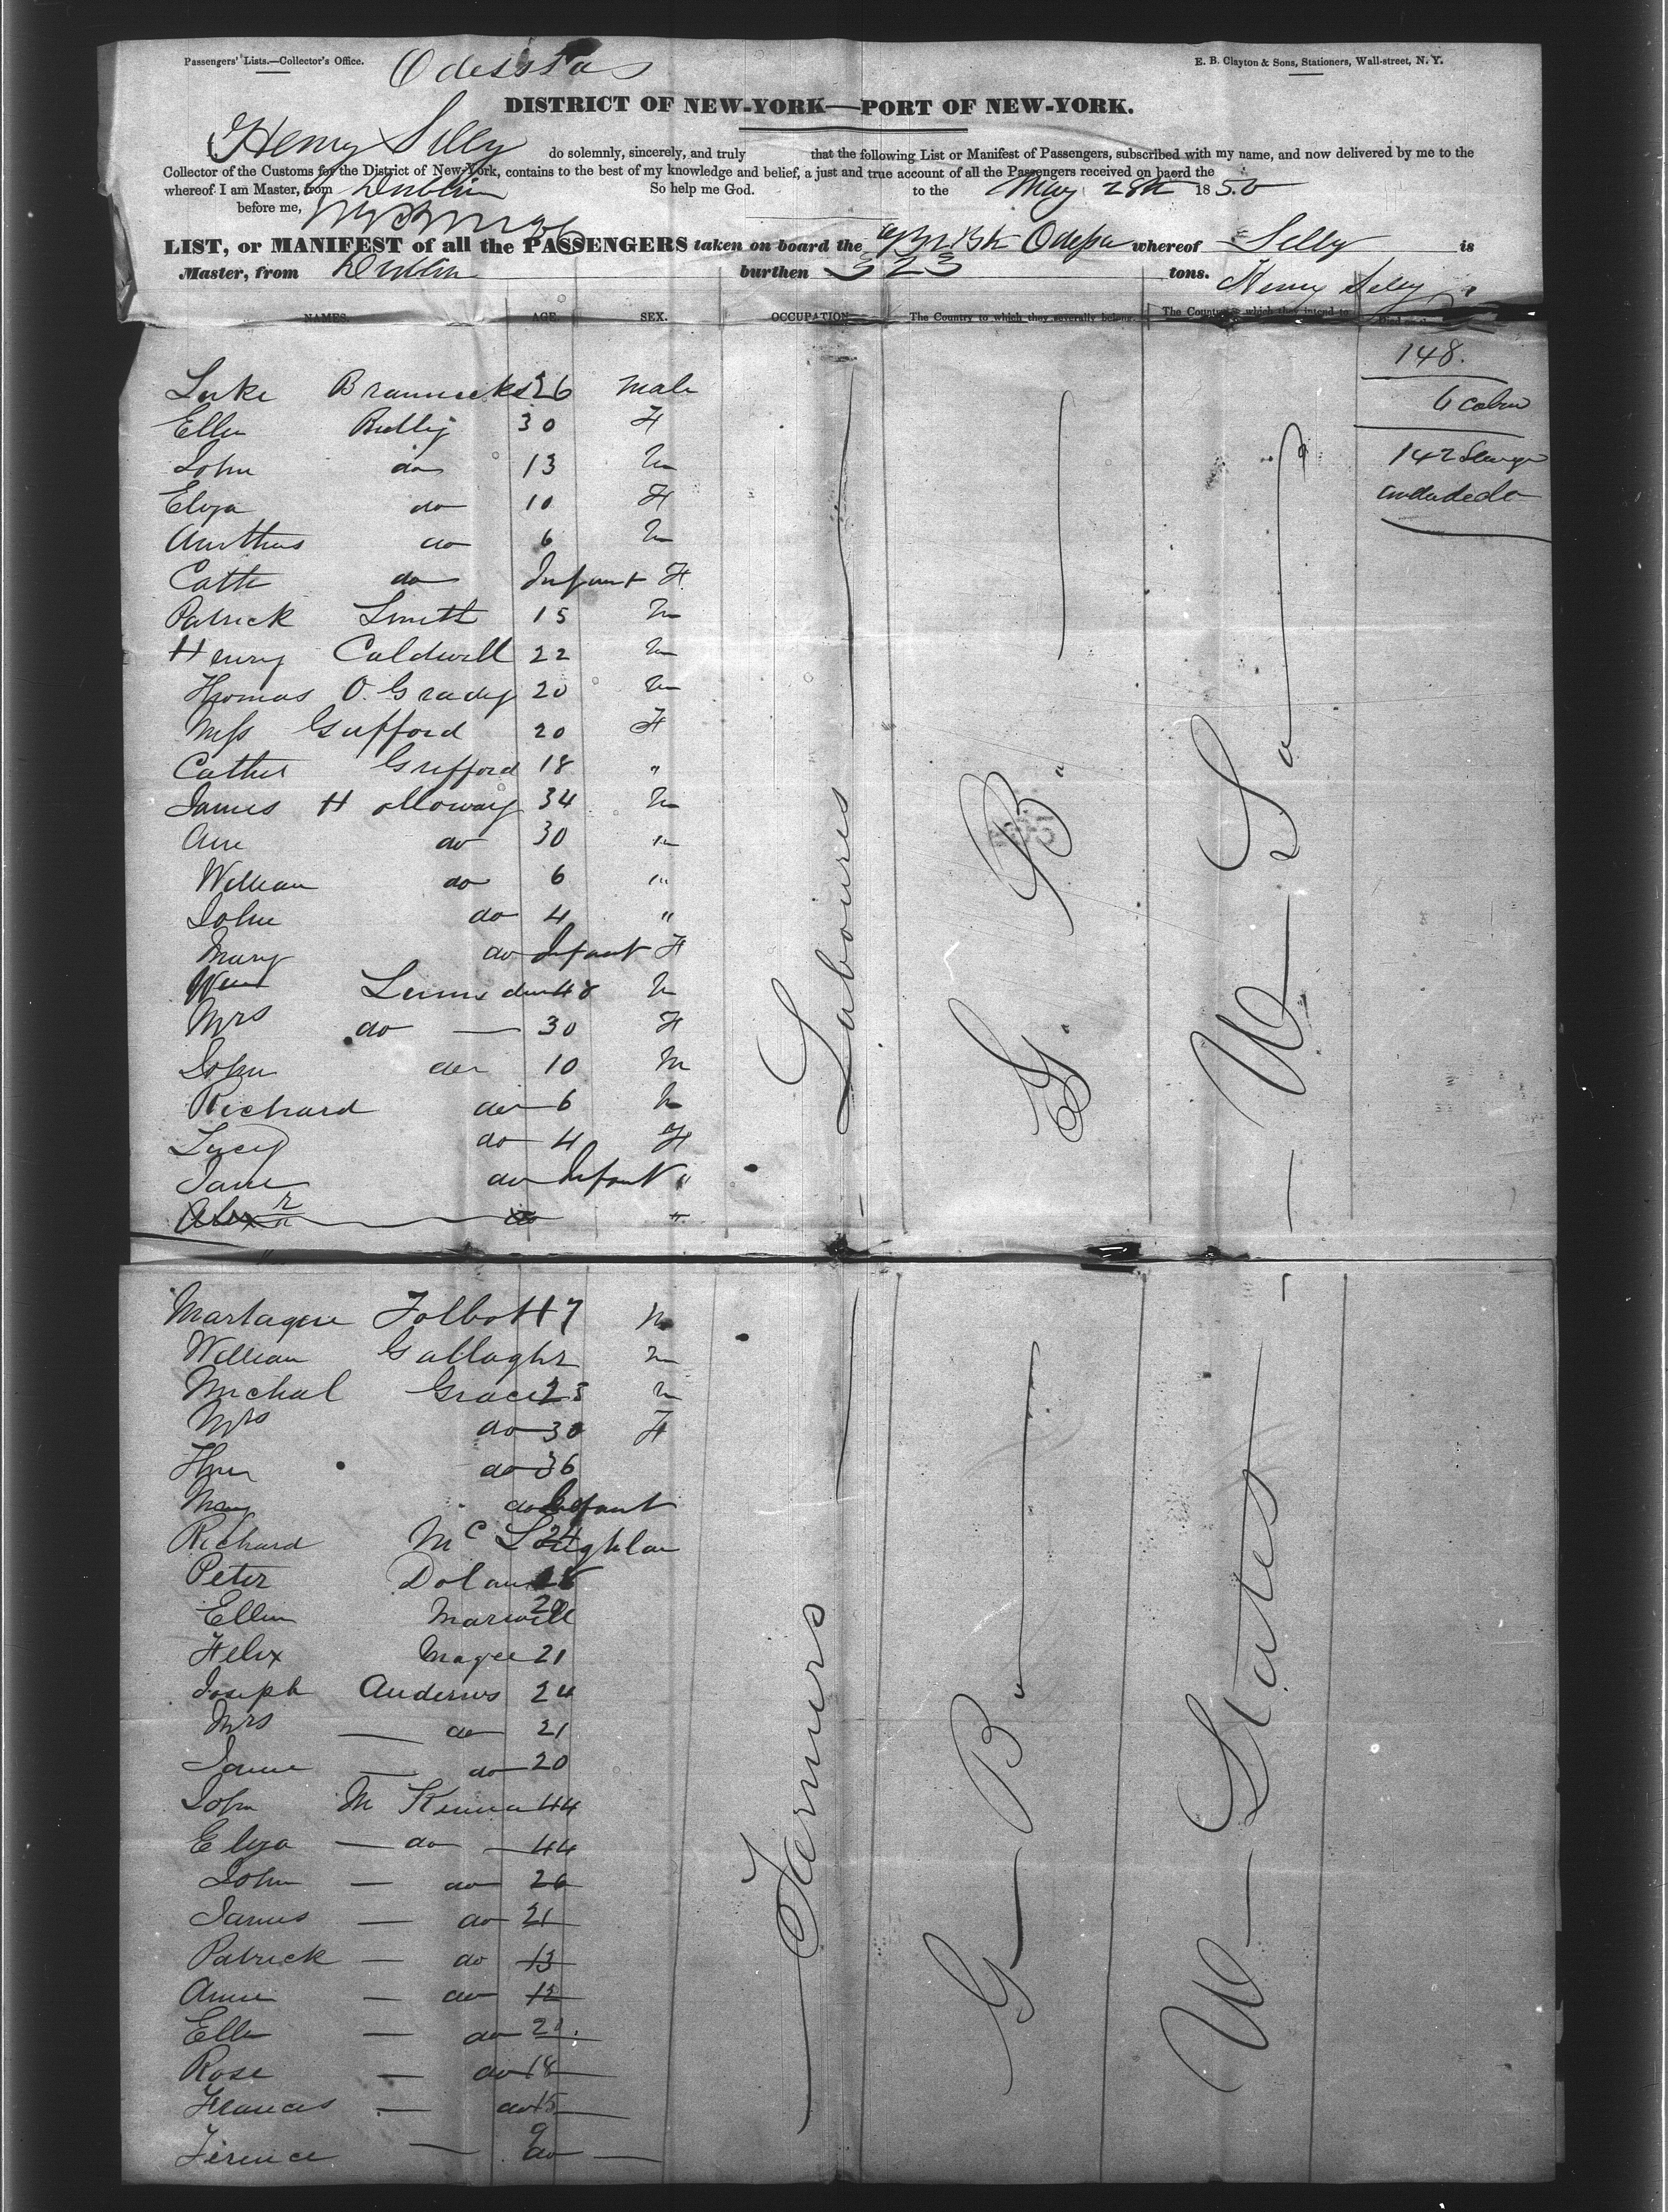 Passengers' Lists.—Collector's Office. Odessa E. B. Clayton & Sons, Stationers, Wall-street, N. Y.
DISTRICT OF NEW-YORK—PORT OF NEW-YORK.
Henry Silly do solemnly, sincerely, and truly that the following List or Manifest of Passengers, subscribed with my name, and now delivered by me to the
Collector of the Customs for the District of New-York, contains to the best of my knowledge and belief, a just and true account of all the Passengers received on board the
whereof I am Master, from Dublin So help me God. to the May 28th 1850
before me,
LIST, or MANIFEST of all the PASSENGERS taken on board the Br Bk Odessa whereof Silly is
Master, from Dublin burthen 323 tons. Henry Silly
NAMES. AGE. SEX. OCCUPATION The Country to which they severally belong. The Country to which they intend to
148.
Luke 26 Male
6 cabin
Ellen 30 F
John do 13 M
142
Eliza do 10 F
do 6 M
Cath do Infant F
Patrick Smith 15 M
Henry Caldwell 22 M
Thomas O. Grady 20 M
Miss Gafford 20 F
Gafford 18 "
James Holloway 34 M
Ann do 30 "
William do 6 "
John do 4 "
Mary do Infant F
48 M
Mrs do — 30 F
John do 10 M
Richard do 6 M
Lucy do 4 F
Jane do Infant "
do "
Labourers G. B. U S
Talbot 17 M
William Gallaghr M
Michal Grace 25 M
Mrs do 30 F
do 36
Mary do Infant
Richard Mc Loughlan 24
Peter Dolan
Ellen 20
Felix Magee 21
Joseph Anderws 24
Mrs — do 21
Jane — do 20
John M Kenna 44
Eliza — do — 44
John — do 26
James — do 21
Patrick — do 13
Anne — do 12
Ellen — do 21
Rose — do 18
Frances — do 15
Terence — do 9 —
Farmers G B U States